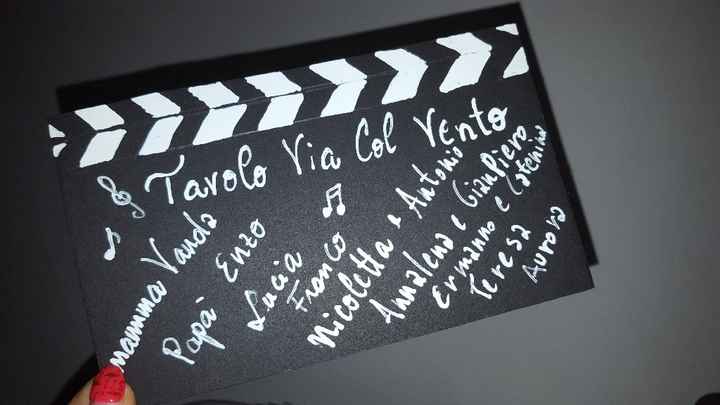 Tavolo Via Col Vento
mamma Vanda
Papà Enzo
Lucia
Franco
Nicoletta e Antonio
Annalena e GianPiero
Ermanno e Caterina
Teresa
Aurora